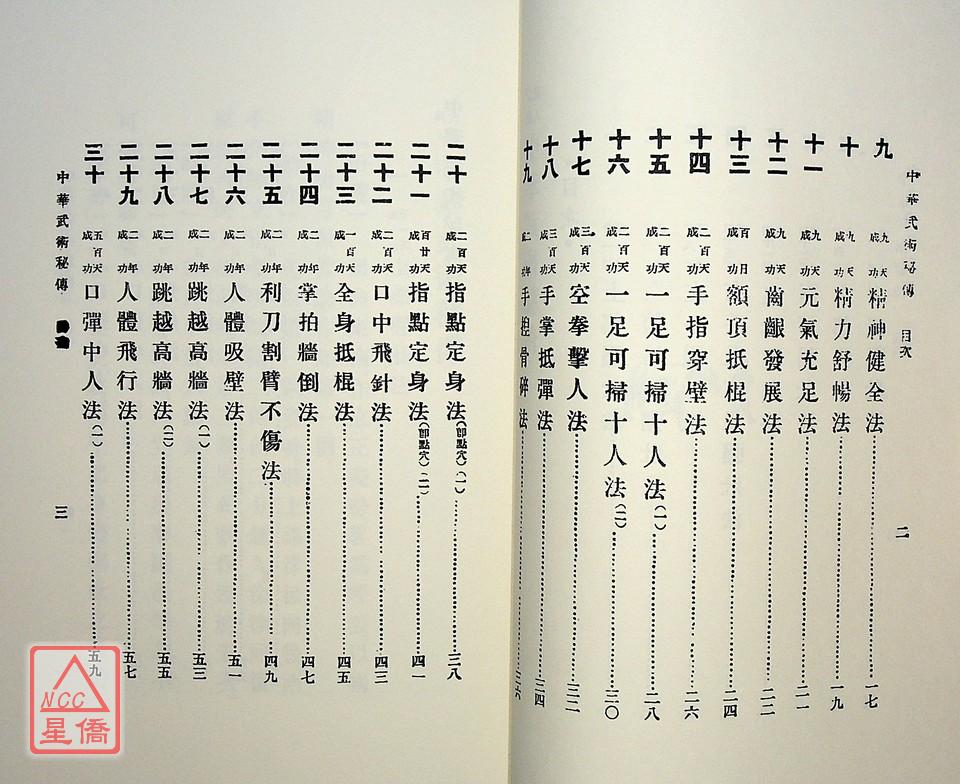 中華武術秘傳 目次 二
九 九天成功 精神健全法 一七
十 九天成功 精力舒暢法 一九
十一 九天成功 元氣充足法 二一
十二 九天成功 齒齦發展法 二二
十三 百日成功 額頂抵棍法 二四
十四 二百天成功 手指穿壁法 二六
十五 二百天成功 一足可掃十人法(一) 二八
十六 二百天成功 一足可掃十人法(二) 三〇
十七 三百天成功 空拳擊人法 三二
十八 三百天成功 手掌抵彈法 三四
十九 二年成功 手捏骨碎法 三六
二十 二百天成功 指點定身法(卽點穴)(一) 三八
二十一 百廿天成功 指點定身法(卽點穴)(二) 四一
二十二 二百天成功 口中飛針法 四三
二十三 一百天成功 全身抵棍法 四五
二十四 二年成功 掌拍牆倒法 四七
二十五 二年成功 利刀割臂不傷法 四九
二十六 二年成功 人體吸壁法 五一
二十七 二年成功 跳越高牆法(一) 五三
二十八 二年成功 跳越高牆法(二) 五五
二十九 二年成功 人體飛行法 五七
三十 五百天成功 口彈中人法(一) 五九
中華武術秘傳 三
NCC
星僑